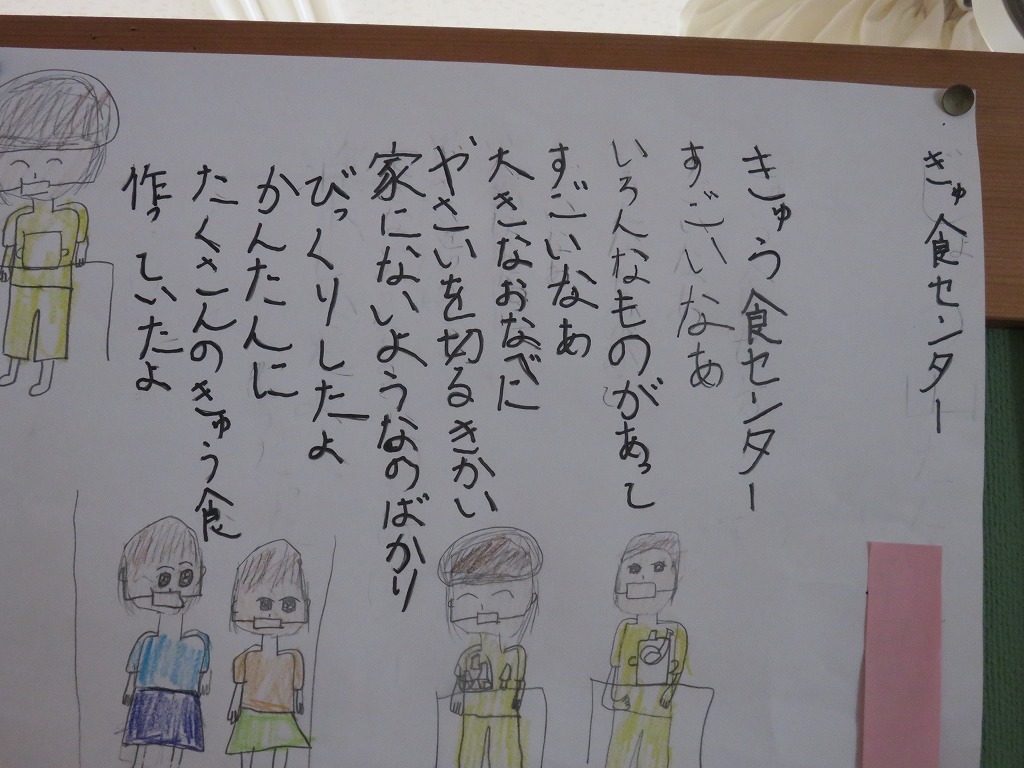 きゅ食センター
きゅう食センター
すごいなあ
いろんなものがあって
すごいなあ
大きなおなべに
やさいを切るきかい
家にないようなのばかり
びっくりしたよ
かんたんに
たくさんのきゅう食
作っていたよ